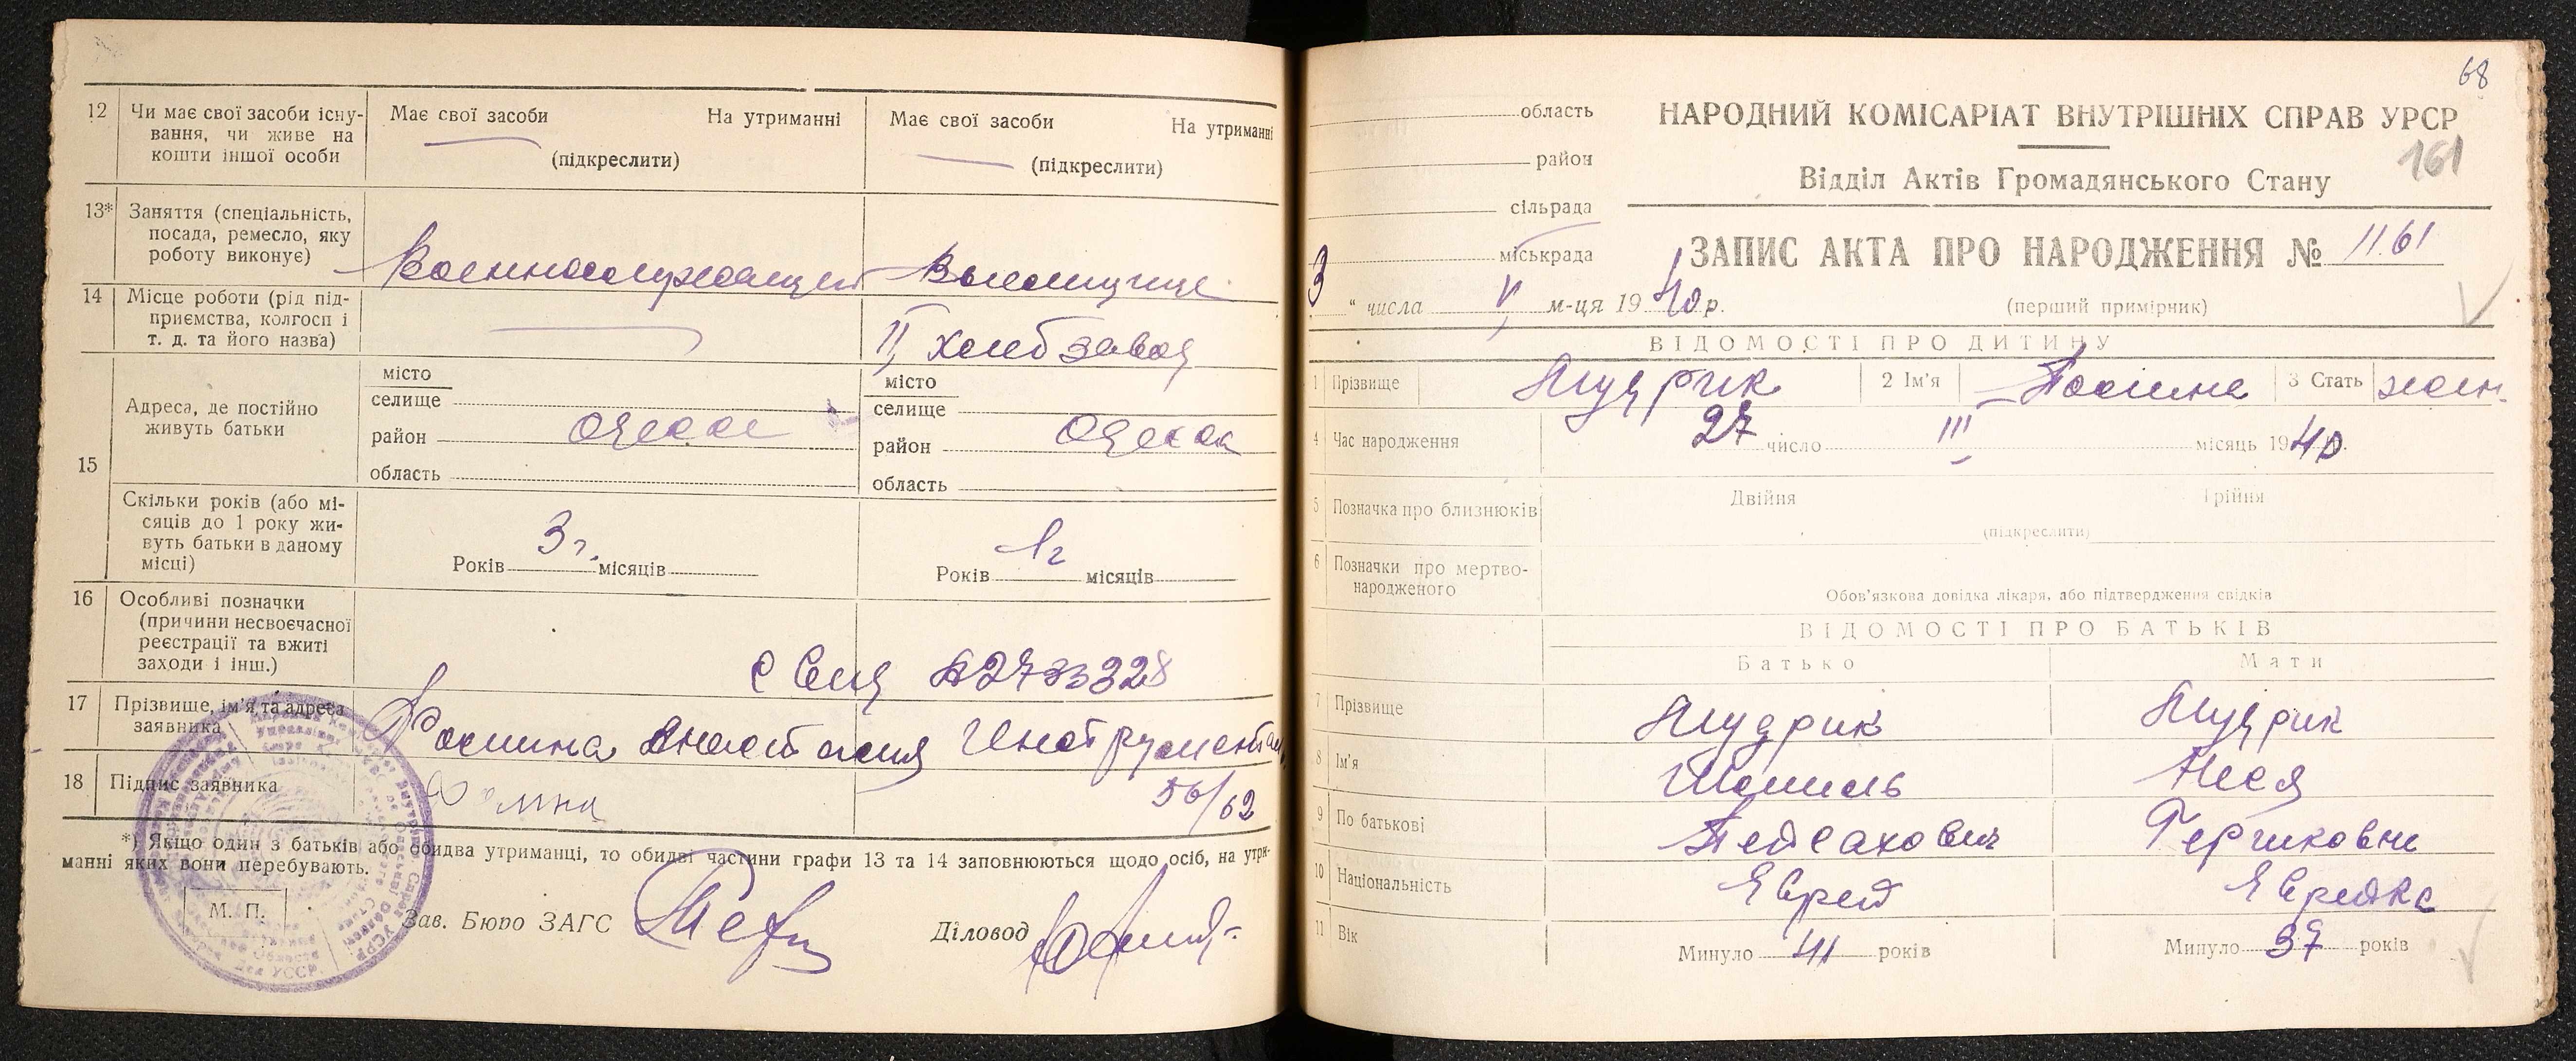 12 Чи має свої засоби існу-
вання, чи живе на
кошти іншої особи
Має свої засоби На утриманні
(підкреслити)
Має свої засоби На утриманні
(підкреслити)
13* Заняття (спеціальність,
посада, ремесло, яку
роботу виконує)
14 Місце роботи (рід під-
приємства, колгосп і
т. д. та його назва)
II хлебзавод
15 Адреса, де постійно
живуть батьки
місто
селище
район Одесса
область
місто
селище
район Одесса
область
Скільки років (або мі-
сяців до 1 року жи-
вуть батьки в даному
місці)
Років 3 г. місяців
Років 1 г місяців
16 Особливі позначки
(причини несвоєчасної
реєстрації та вжиті
заходи і інш.)
17 Прізвище, ім'я та адреса
заявника
Анастасия
18 Підпис заявника
56/62
*) Якщо один з батьків або обидва утриманці, то обидві частини графи 13 та 14 заповнюються щодо осіб, на утри-
манні яких вони перебувають.
М. П.
Зав. Бюро ЗАГС
Діловод
68
область
район
сільрада
міськрада
НАРОДНИЙ КОМІСАРІАТ ВНУТРІШНІХ СПРАВ УРСР
161
Відділ Актів Громадянського Стану
ЗАПИС АКТА ПРО НАРОДЖЕННЯ № 1161
3 " числа V м-ця 1940 р.
(перший примірник)
ВІДОМОСТІ ПРО ДИТИНУ
1 Прізвище Мудрик 2 Ім'я 3 Стать жен.
4 Час народження 27 число III місяць 1940 р.
5 Позначка про близнюків Двійня Трійня
(підкреслити)
6 Позначки про мертво-
народженого
Обов'язкова довідка лікаря, або підтвердження свідків
ВІДОМОСТІ ПРО БАТЬКІВ
Батько Мати
7 Прізвище Мудрик Мудрик
8 Ім'я
9 По батькові Пейсахович Гершковна
10 Національність Еврей Еврейка
11 Вік Минуло 41 років Минуло 37 років